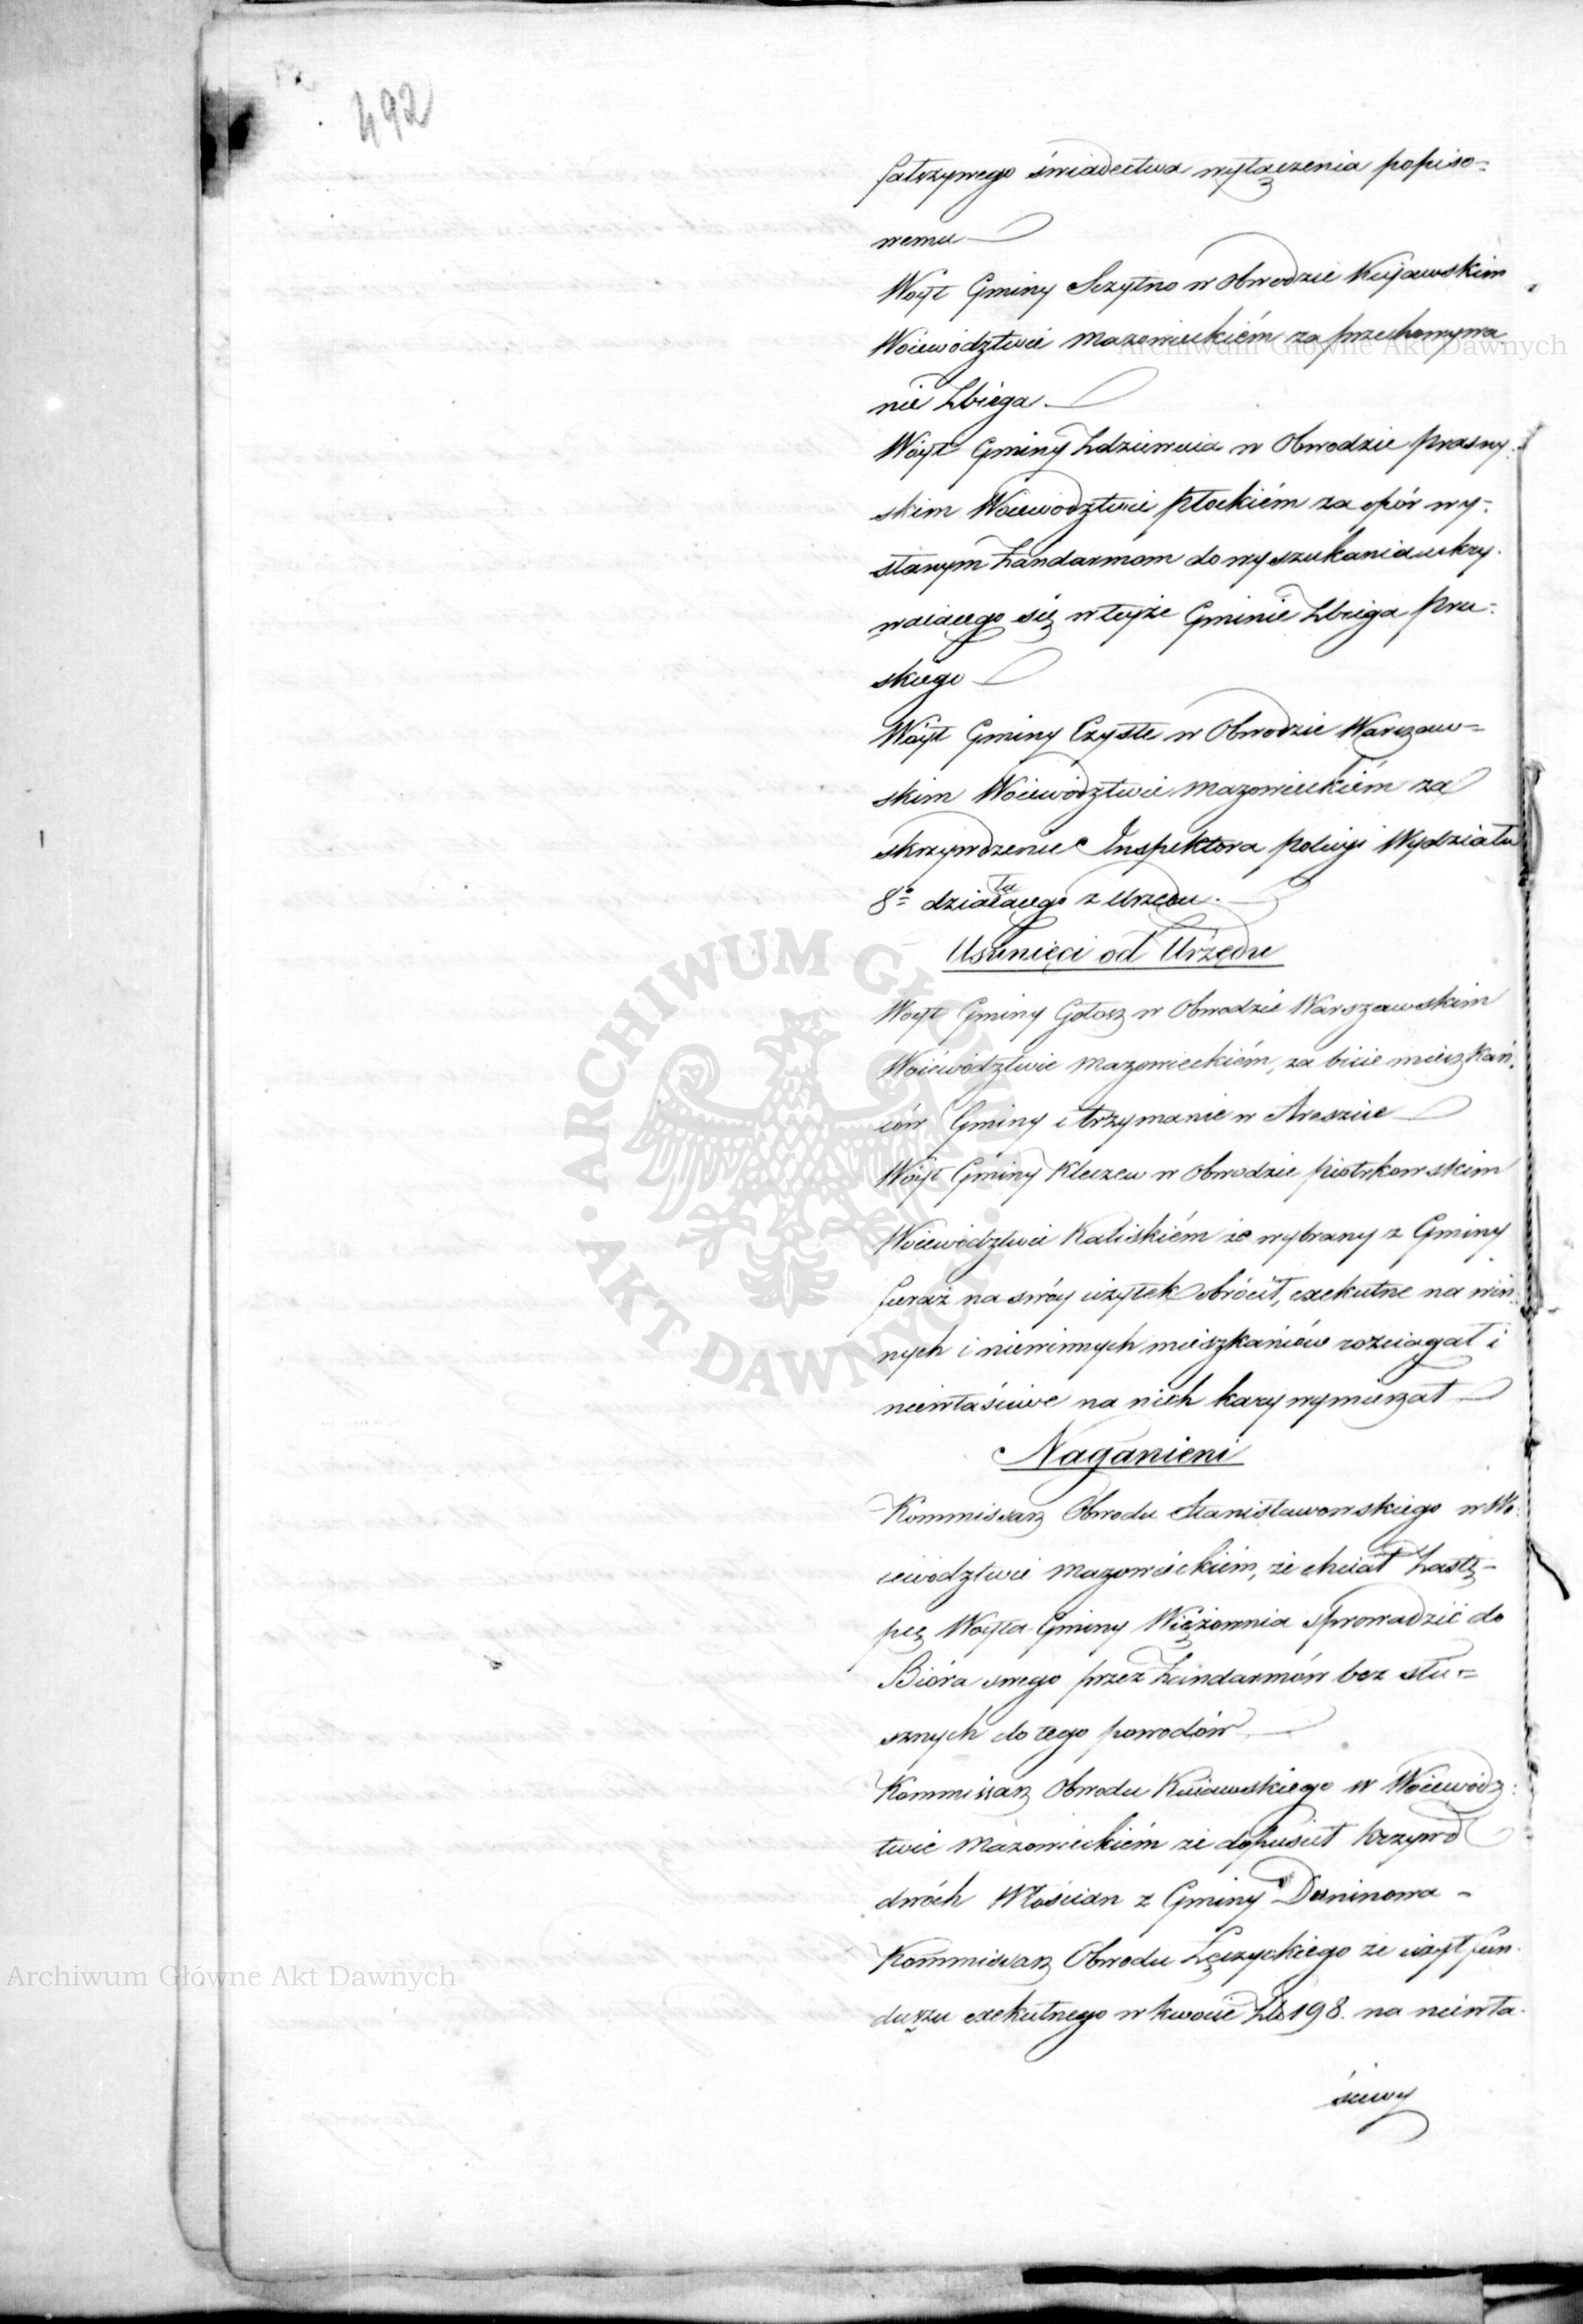 492
fałszywego świadectwa wyłączenia popiso=
wemu
Woyt Gminy Sczytno w Obwodzie Kujawskim
Woiewództwie Mazowieckiém za przechowywa
nie Zbiega.
Wóyt Gminy Zdziwuia w Obwodzie Prasny:
skim Woiewodztwie Płockiém za opór wy:
słanym Żandarmom do wyszukania ukry.
waiącego się w teyże Gminie Zbiega Pru:
skiego
Wóyt Gminy Czyste w Obwodzie Warszaw=
skim Woiewództwie Mazowieckiém za
skrzywdzenie Inspektora Policyi Wydziału
8º działaiącego z Urzędu.
Usunięci od Urzędu
Woyt Gminy Gołosz w Obwodzie Warszawskim
Woiewództwie Mazowieckiém, za bicie mieszkań:
ców Gminy i trzymanie w Areszcie
Wóyt Gminy Kleczew w Obwodzie Piotrkowskim
Woiewództwie Kaliskiém że wybrany z Gminy
furaż na swóy użytek obrócił, exekutne na win:
nych i niewinnych mieszkańców rozciągał i
niewłaściwe na nich kary wymierzał
Naganieni
Kommissarz Obwodu Stanisławowskiego w Wo:
iewodztwie Mazowieckiém, że chciał Zastę-
pcę Woyta Gminy Więżownia sprowadzić do
Bióra swego przez Żandarmów bez słu=
sznych do tego powodów
Kommissarz Obwodu Kuiawskiego w Woiewódz:
twie Mazowieckiém że dopuścił krzywd
dwóch Włościan z Gminy Daninowa -
Kommissarz Obwodu Łęczyckiego że użył fun.
duszu exekutnego w kwocie Zł 198. na niewła.
ściwy
Archiwum Główne Akt Dawnych
Archiwum Główne Akt Dawnych
ARCHIWUM GŁÓWNE · AKT DAWNYCH ·